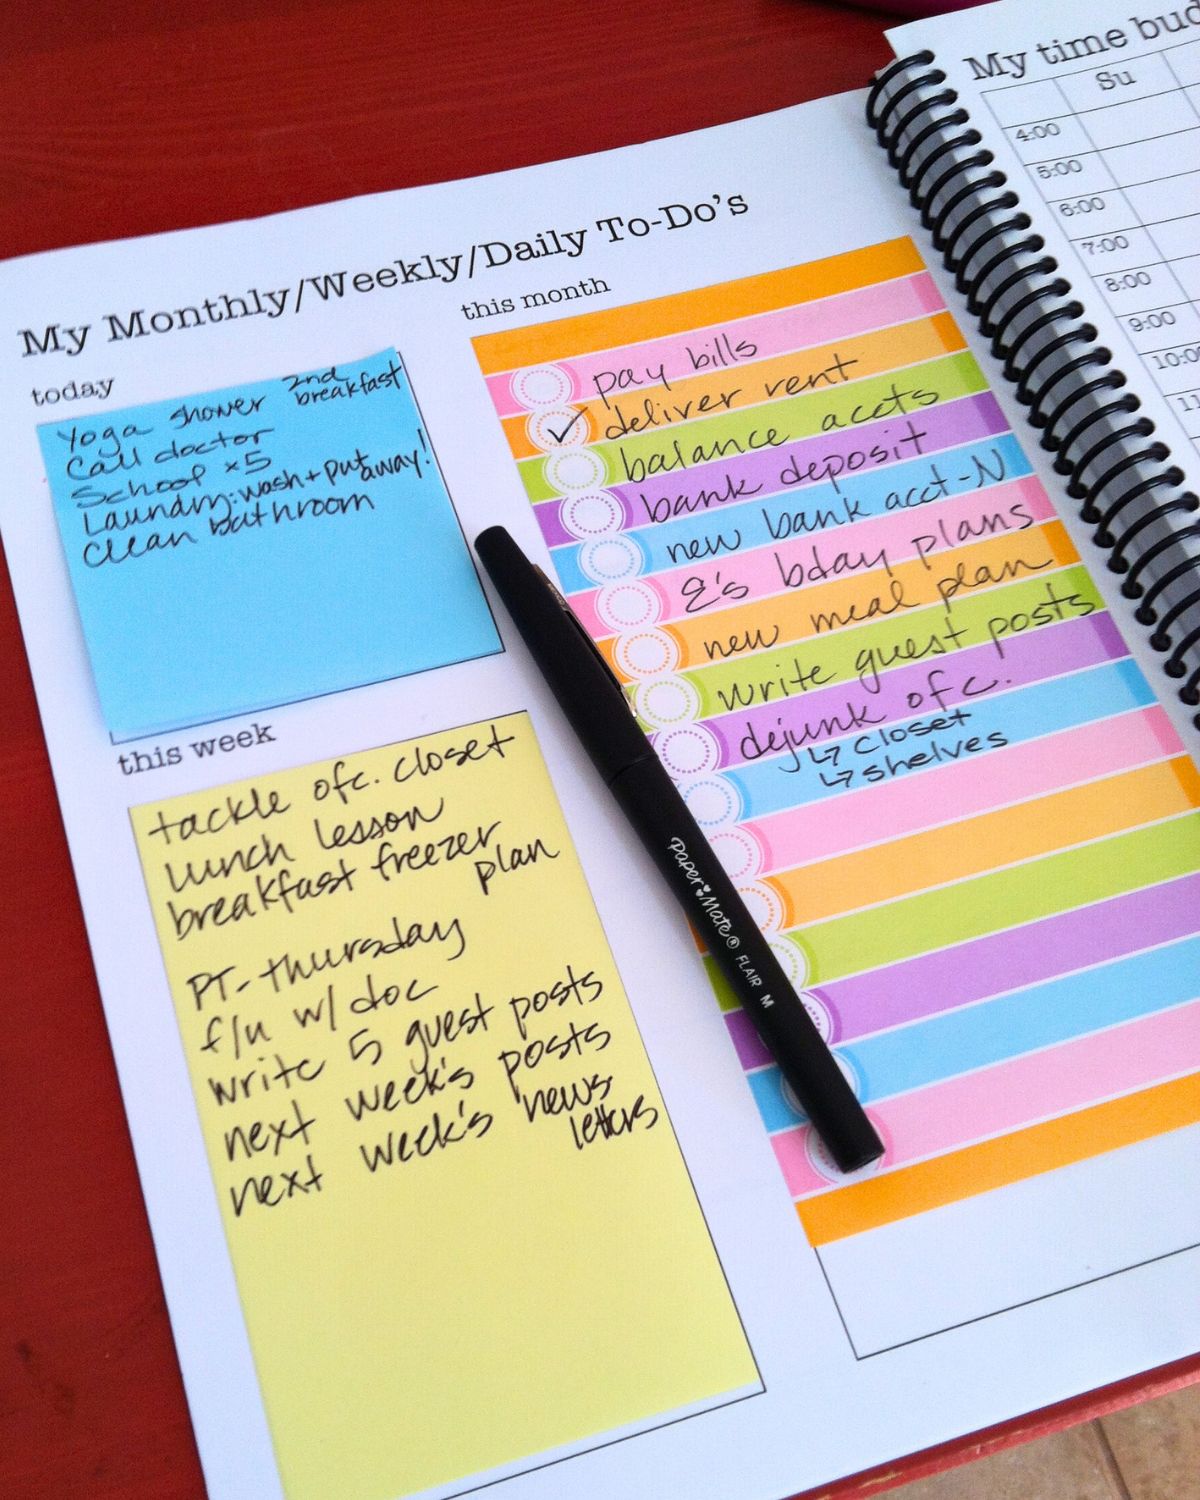 My time
Su
4:00
5:00
6:00
7:00
8:00
9:00
My Monthly/Weekly/Daily To-Do's
today
Yoga shower 2nd breakfast
Call doctor
School x5
Laundry: wash + put away!
clean bathroom
this week
tackle ofc. closet
lunch lesson
breakfast freezer
plan
PT- thursday
f/u w/ doc
write 5 guest posts
next week's posts
next week's news
letters
this month
pay bills
✓ deliver rent
balance accts
bank deposit
new bank acct-N
E's bday plans
new meal plan
write guest posts
dejunk ofc.
↳ closet
↳ shelves
Paper Mate® FLAIR M